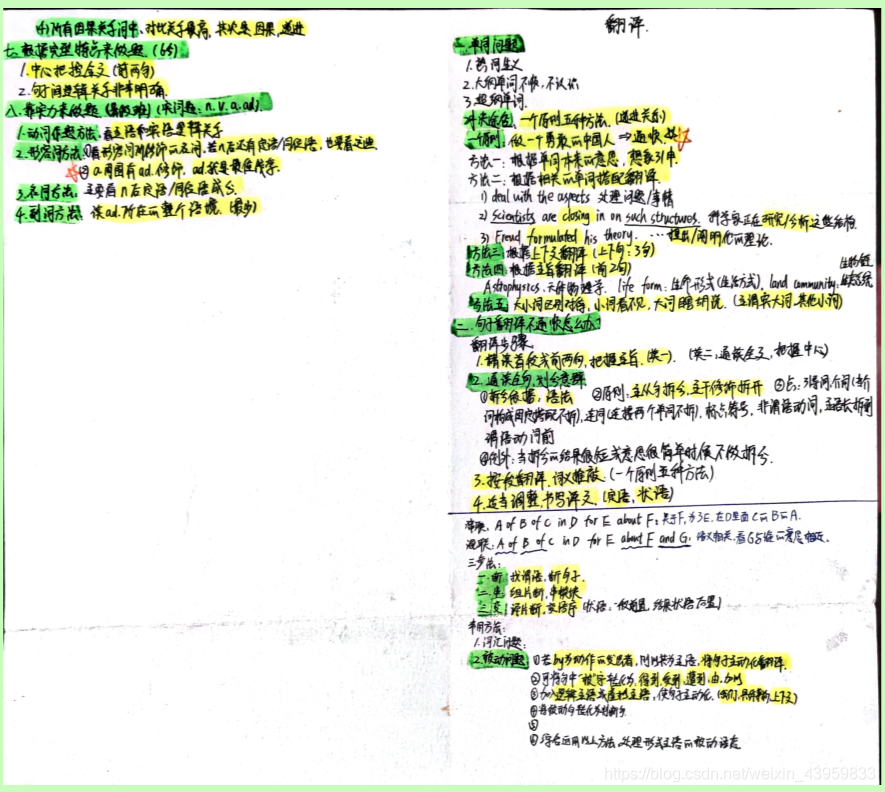 (4)所有因果关系词中,对比关系最高,其次是因果,递进
七、数据实型特点来做题 (6分)
1.中心把控全文 (前两句)
2.句子间逻辑关系非常明确
八、靠实力来做题 (实词题:n. v. a. ad.)
1.动词做题方法:看主语和宾语逻辑关系
2.形容词方法:①看形容词所修饰的名词,若n后还有定语/同位语,也要看这边
②a.周围有ad.修饰,ad.就是最佳线索
3.名词方法:主要看n后定语/同位语成分
4.副词方法:读ad.所在的整个语境.(最少)
翻译.
一、单词问题
1.熟词生义
2.大纲单词不够,不认识
3.超纲单词.
解决途径:一个原则五种方法.(递进关系)
一个原则:做一个勇敢的中国人 ⇒ 通快
方法一:根据单词本来的意思,想象引申.
方法二:根据相关的单词搭配翻译.
1) deal with the aspects 处理问题/事情
2) scientists are closing in on such structures. 科学家正在研究/分析这些结构.
3) Freud formulated his theory. …提出/阐明他的理论.
方法三:根据上下文翻译 (上下句:3句)
方法四:根据主旨翻译 (前2句)
Astrophysics.天体物理学. life form:生命形式(生活方式). land community:生物链 生态系统
方法五:大小词区别对待,小词看不见,大词瞎胡说.(主谓宾大词,其他小词)
二、句子翻译不通快怎么办.
翻译步骤
1.精读首段或前两句,把握主旨.(英一). (英二,通读全文,把握中心)
2.通读全句,划分意群
①拆分依据:语法 ②原则:主从句拆分,主干修饰拆开 ③点:引导词,介词(介
词构成固定搭配不拆),连词(连接两个单词不拆),标点符号,非谓语动词,主语长拆到
谓语动词前
④例外:当拆分的结果很短或意思很简单时候不做拆分.
3.按段翻译,词义推敲.(一个原则五种方法)
4.适当调整,书写译文.(定语,状语)
常联. A of B of C in D for E about F:关于F,为了E,在D里面C的B的A.
混联:A of B of C in D for E about F and G. 语义相关,看G与谁的意思相近.
三步法:
一.断 找谓语,断句子.
二.连 组片断,串模块
三.变 译片断,变语序 (状语,一般前置,结果状语后置)
常用方法:
1.词汇问题:
2.被动问题 ①若by为动作的发出者,则以其为主语,将句子主动化翻译.
②可将句中"被"字转化为,得到,受到,遭到,由,加以
③加入逻辑主语或虚拟主语,使句子主动化.
④将被动句转化为判断句.
⑤
⑥综合运用以上方法,处理形式主语的被动语态
https://blog.csdn.net/weixin_43959833